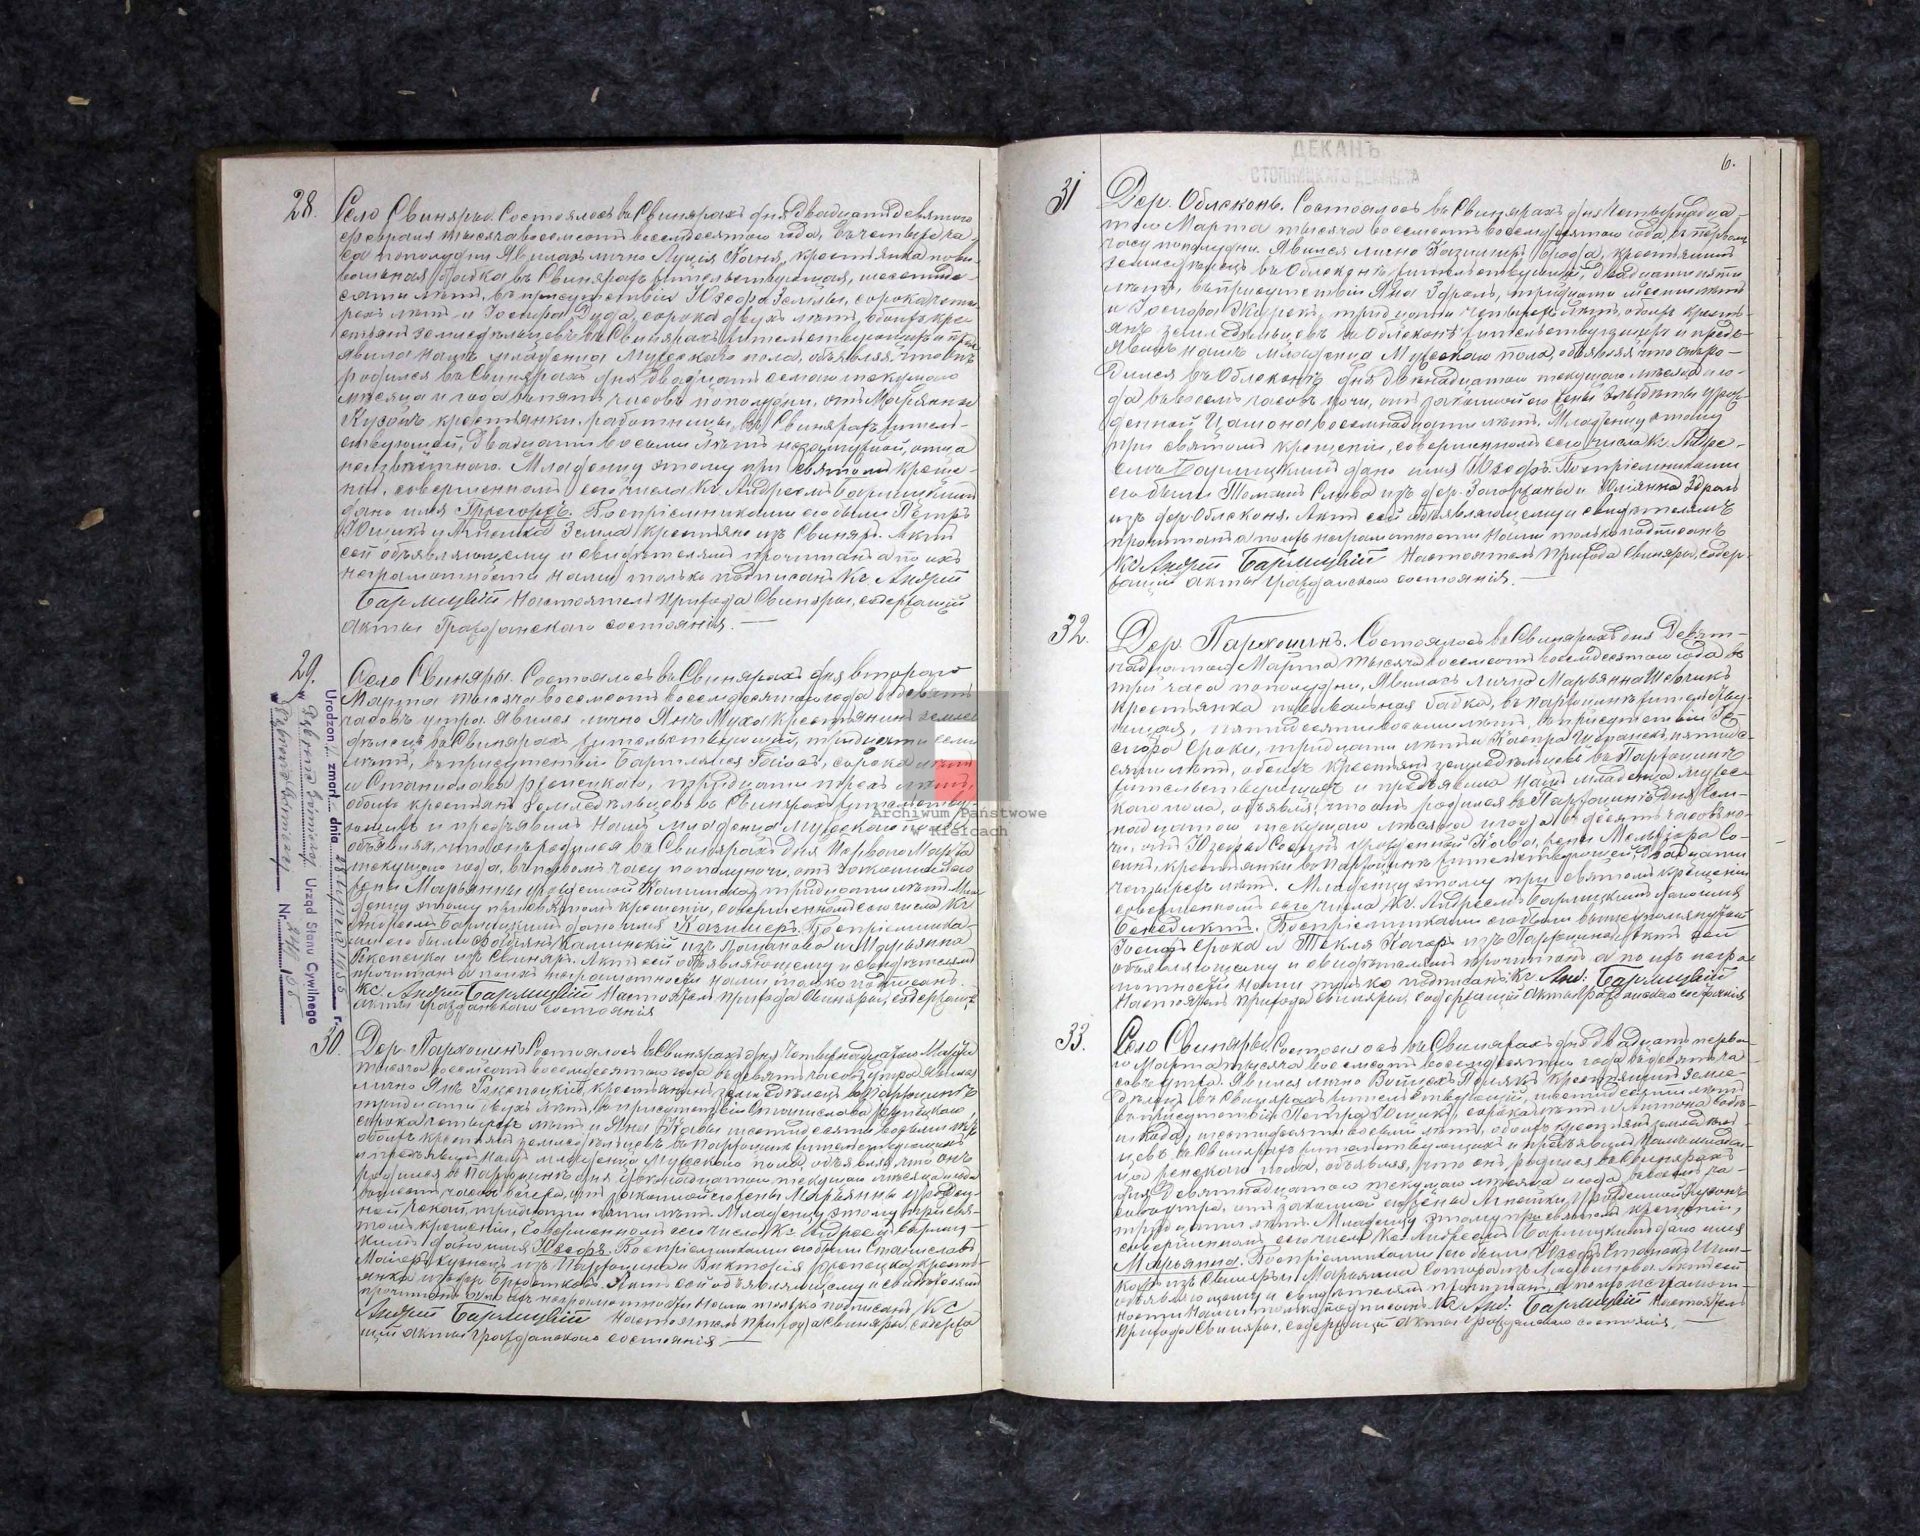 28.
Село Свиняры. Состоялось въ Свинярахъ дня двадцать девятого
февраля тысяча восемсотъ восемдесятого года, въ четыре ча-
са пополудни. Явилась лично Луція Каня, крестьянка повы-
вальная бабка въ Свинярахъ жительствующая, шестиде-
сяти лѣтъ, въ присутствіи Юзефа Земли, сорока четы-
рехъ лѣтъ и Іосифа Дуда, сорока двухъ лѣтъ, обоихъ кре-
стьянъ земледѣльцевъ въ Свинярахъ жительствующихъ и пред-
явила Намъ младенца Мужескаго пола, объявляя, что онъ
родился въ Свинярахъ дня двадцать седмаго текущаго
мѣсяца и года въ пять часовъ пополудни, отъ Марьянны
крестьянки, работницы, въ Свинярахъ житель-
ствующей, двадцати восьми лѣтъ незамужной, отца
неизвѣстнаго. Младенцу этому при святомъ креще-
ніи, совершенномъ сего числа Кс. Андреемъ Бармицкимъ
дано имя Гржегоржъ. Воспріемниками его были Петръ
Ющикъ и Агнешка Земла крестьяне изъ Свиняръ. Актъ
сей объявляющему и свидѣтелямъ прочитанъ а по ихъ
неграмотности Нами только подписанъ Кс. Андрей
Бармицкій Настоятель Прихода Свиняры, содержащій
Акты Гражданскаго состоянія.
29.
Село Свиняры. Состоялось въ Свинярахъ дня втораго
Марта тысяча восемсотъ восемдесятаго года въ девять
часовъ утра. Явился лично Янъ Муха крестьянинъ земле
дѣлецъ въ Свинярахъ жительствующій, тридцати семи
лѣтъ, въ присутствіи сорока лѣтъ
и Станислава Ржепецкаго, тридцати трехъ лѣтъ,
обоихъ крестьянъ земледѣльцевъ въ Свинярахъ жительству-
ющихъ и предъявилъ Намъ младенца Мужескаго пола
объявляя, что онъ родился въ Свинярахъ дня Перваго Марта
текущаго года, въ первомъ часу пополуночи, отъ законной его
жены Марьянны урожденной Калинской, тридцати лѣтъ. Мла
денцу этому при святомъ крещеніи, совершенномъ сего числа Кс.
Андреемъ Бармицкимъ дано имя Казимержъ. Воспріемника-
ми его были Калинскій изъ и Марьянна
Ржепецка изъ Свиняръ. Актъ сей объявляющему и свидѣтелямъ
прочитанъ а по ихъ неграмотности Нами только подписанъ.
Кс. Андрей Бармицкій Настоятель Прихода Свиняры, содержащій
Акты Гражданскаго состоянія
Urodzon zmarł dnia r.
w
Urząd Stanu Cywilnego
w Nr.
30.
Дер. Пархоцинъ. Состоялось въ Свинярахъ дня Четырнадцатаго Марта
тысяча восемсотъ восемдесятаго года въ девять часовъ утра. Явился
лично Янъ крестьянинъ земледѣлецъ въ Пархоцинѣ
тридцати двухъ лѣтъ, въ присутствіи Станислава
сорока четырехъ лѣтъ и Яна шестидесяти восьми лѣтъ
обоихъ крестьянъ земледѣльцевъ въ Пархоцинѣ жительствующихъ
и предъявилъ Намъ младенца Мужескаго пола, объявляя, что онъ
родился въ Пархоцинѣ дня текущаго мѣсяца и года
въ часовъ вечера, отъ законной его жены Марьянны урожден-
ной тридцати лѣтъ. Младенцу этому при свя-
томъ крещеніи, совершенномъ сего числа Кс. Андреемъ Бармиц-
кимъ дано имя Юзефъ. Воспріемниками его были Станиславъ
изъ Пархоцина и Викторія Ржепецка, кресть-
янка изъ дер. Актъ сей объявляющему и свидѣтелямъ
прочитанъ а по ихъ неграмотности Нами только подписанъ Кс.
Андрей Бармицкій Настоятель Прихода Свиняры, содержа
щій Акты Гражданскаго состоянія
Archiwum Państwowe
w Kielcach
ДЕКАНЪ
СТОПНИЦКАГО ДЕКАНАТА
6.
31
Дер. Облеконь. Состоялось въ Свинярахъ дня Четырнадца-
таго Марта тысяча восемсотъ восемдесятаго года, въ первомъ
часу пополудни. Явился лично Казимиръ крестьянинъ
земледѣлецъ въ Облеконѣ жительствующій, двадцати пяти
лѣтъ, въ присутствіи Яна Здраль, тридцати шести лѣтъ
и Іосифа тридцати четырехъ лѣтъ, обоихъ кресть-
янъ земледѣльцевъ въ Облеконѣ жительствующихъ и предъ-
явилъ Намъ младенца Мужескаго пола, объявляя что онъ ро-
дился въ Облеконѣ дня двѣнадцатаго текущаго мѣсяца и го-
да въ восемь часовъ ночи, отъ законной его жены Эльжбеты урож-
денной восемнадцати лѣтъ. Младенцу этому
при святомъ крещеніи, совершенномъ сего числа Кс. Андре-
емъ Бармицкимъ дано имя Юзефъ. Воспріемниками
его были Томашъ Слива изъ дер. Загоржаны и Юліянна Здраль
изъ дер. Облеконя. Актъ сей объявляющему и свидѣтелямъ
прочитанъ а по ихъ неграмотности Нами только подписанъ
Кс. Андрей Бармицкій Настоятель Прихода Свиняры, содер-
жащій Акты Гражданскаго состоянія.
32.
Дер. Пархоцинъ. Состоялось въ Свинярахъ дня Девят-
надцатаго Марта тысяча восемсотъ восемдесятаго года въ
три часа пополудни, Явилась лично Марьянна
крестьянка повивальная бабка, въ Пархоцинѣ жительству-
ющая, пятидесяти восьми лѣтъ, въ присутствіи Іо-
сифа Сроки, тридцати лѣтъ и Каспра пятиде-
сяти лѣтъ, обоихъ крестьянъ земледѣльцевъ въ Пархоцинѣ
жительствующихъ и предъявила Намъ младенца мужес-
каго пола, объявляя, что онъ родился въ Пархоцинѣ дня Сем-
надцатаго текущаго мѣсяца и года въ десять часовъ но-
чи, отъ Юзефы урожденной жены Мельхіора
крестьянки въ Пархоцинѣ жительствующей, двадцати
четырехъ лѣтъ. Младенцу этому при святомъ крещеніи
совершенномъ сего числа Кс. Андреемъ Бармицкимъ дано имя
Бенедиктъ. Воспріемниками его были вышеупомянутый
Іосифъ Срока и Текля изъ Пархоцина. Актъ сей
объявляющему и свидѣтелямъ прочитанъ а по ихъ неграм
мотности Нами только подписанъ. Кс. Анд: Бармицкій
Настоятель Прихода Свиняры, содержащій Акты Гражданскаго состоянія
33.
Село Свиняры Состоялось въ Свинярахъ дня Двадцать перва-
го Марта тысяча восемсотъ восемдесятаго года въ девять ча
совъ утра. Явился лично Войцехъ крестьянинъ земле-
дѣлецъ въ Свинярахъ жительствующій, лѣтъ
въ присутствіи Петра Ющика, сорока лѣтъ и Антона
шестидесяти восьми лѣтъ, обоихъ крестьянъ земледѣль-
цевъ въ Свинярахъ жительствующихъ и предъявилъ Намъ младен-
ца женскаго пола, объявляя, что онъ родился въ Свинярахъ
дня Девятнадцатаго текущаго мѣсяца и года въ ча-
совъ утра, отъ законной его жены Агнешки, урожденной
тридцати лѣтъ. Младенцу этому при святомъ крещеніи,
совершенномъ сего числа Кс. Андреемъ Бармицкимъ дано имя
Марьянна. Воспріемниками его были Юзефъ
изъ Свиняры и Марьянна изъ Актъ сей
объявляющему и свидѣтелямъ прочитанъ а по ихъ неграмот-
ности Нами только подписанъ Кс. Анд: Бармицкій Настоятель
Прихода Свиняры, содержащій Акты Гражданскаго состоянія.